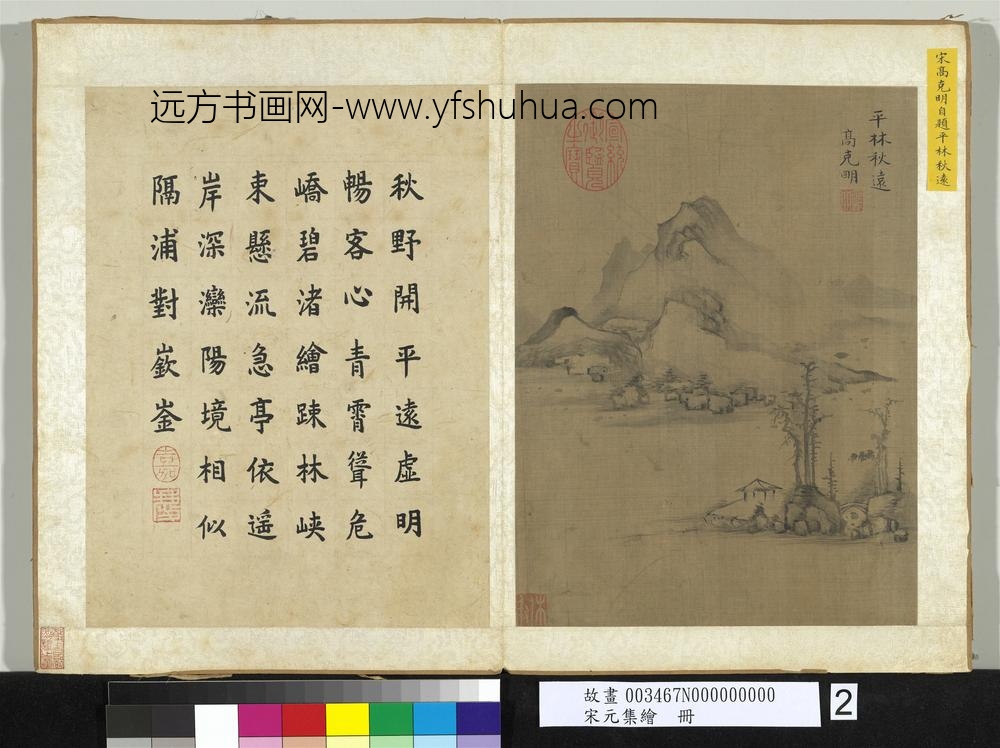 远方书画网-www.yfshuhua.com
宋高克明自題平林秋遠
平林秋遠
高克明
宣統御覽之寶
秋野開平遠虛明
暢客心青霄聳危
嶠碧渚繪踈林峽
束懸流急亭依遥
岸深灤陽境相似
隔浦對嶔崟
故畫 003467N000000000
宋元集繪 冊
2